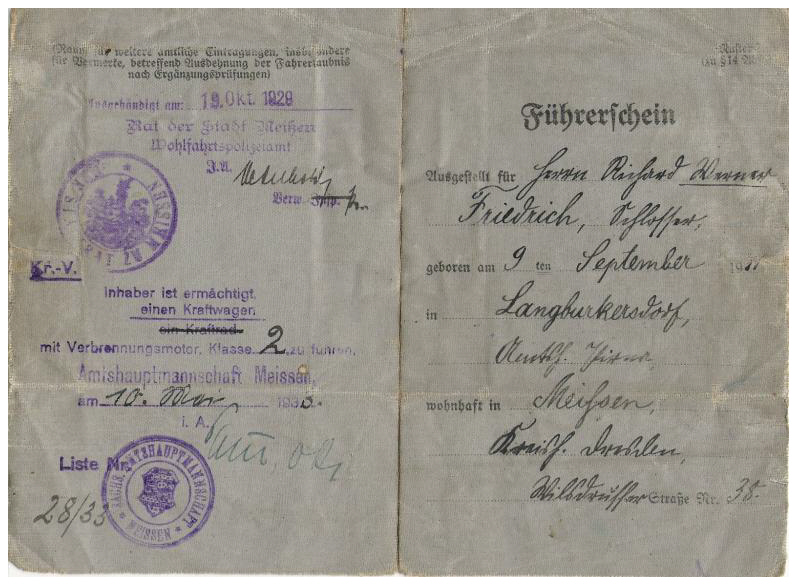 (Raum für weitere amtliche Eintragungen, insbesondere
für Vermerke, betreffend Ausdehnung der Fahrerlaubnis
nach Ergänzungsprüfungen)
Ausgehändigt am: 19. Okt. 1929
Rat der Stadt Meißen
Wohlfahrtspolizeiamt
J.A.
Verw.
Kr.-V.
Inhaber ist ermächtigt,
einen Kraftwagen
ein Kraftrad
mit Verbrennungsmotor, Klasse 2 zu führen.
Amtshauptmannschaft Meissen,
am 10. Mai 1933.
i. A.
Liste Nr.
28/33
SÄCHS. AMTSHAUPTMANNSCHAFT
* MEISSEN *
Muster
(zu § 14
Führerschein
Ausgestellt für Herrn Richard Werner
Friedrich, Schlosser,
geboren am 9 ten September 1911
in Langburkersdorf,
Amtsh. Pirna,
wohnhaft in Meissen,
Kreish. Dresden,
Wilsdruffer Straße Nr. 38.